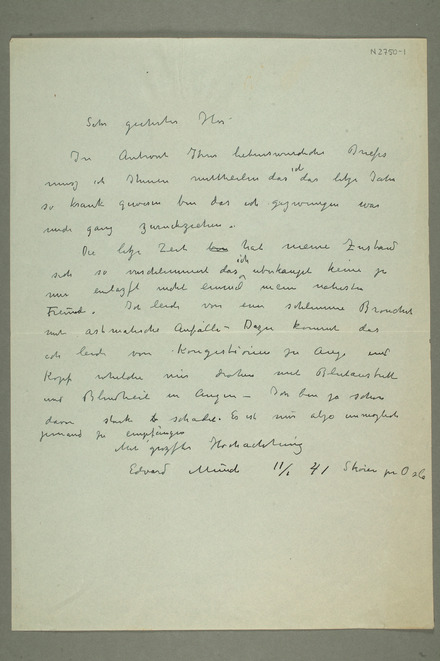 N 2750-1
Sehr geehrter Herr
In Antwort Ihres liebenswürdiches Briefes
musz ich Ihnen mittheilen das ich das letze Jahr
so krank gewesen bin das ich gezwungen war
mich ganz zurückziehen.
Die letze Zeit hat meine Zustand
sich so verschlimmert das ich überhaupt keine ze
nur empfaft nicht einmal mein nahesten
Freunde. Ich leide von eine schlimme Bronchit
mit asthmatische Anfälle – Dazu kommt das
ich leide von Kongestionen zu Auge und
Kopf welche mir drohen mit Blutaustritt
und Blindheit in Augen – Ich bin ja schon
davon stark be schadet. Es ist mir also unmöglich
jemand zu empfangen
Mit groszter Hochachtung
Edvard Munch 11/1 41 Skøien pr Oslo